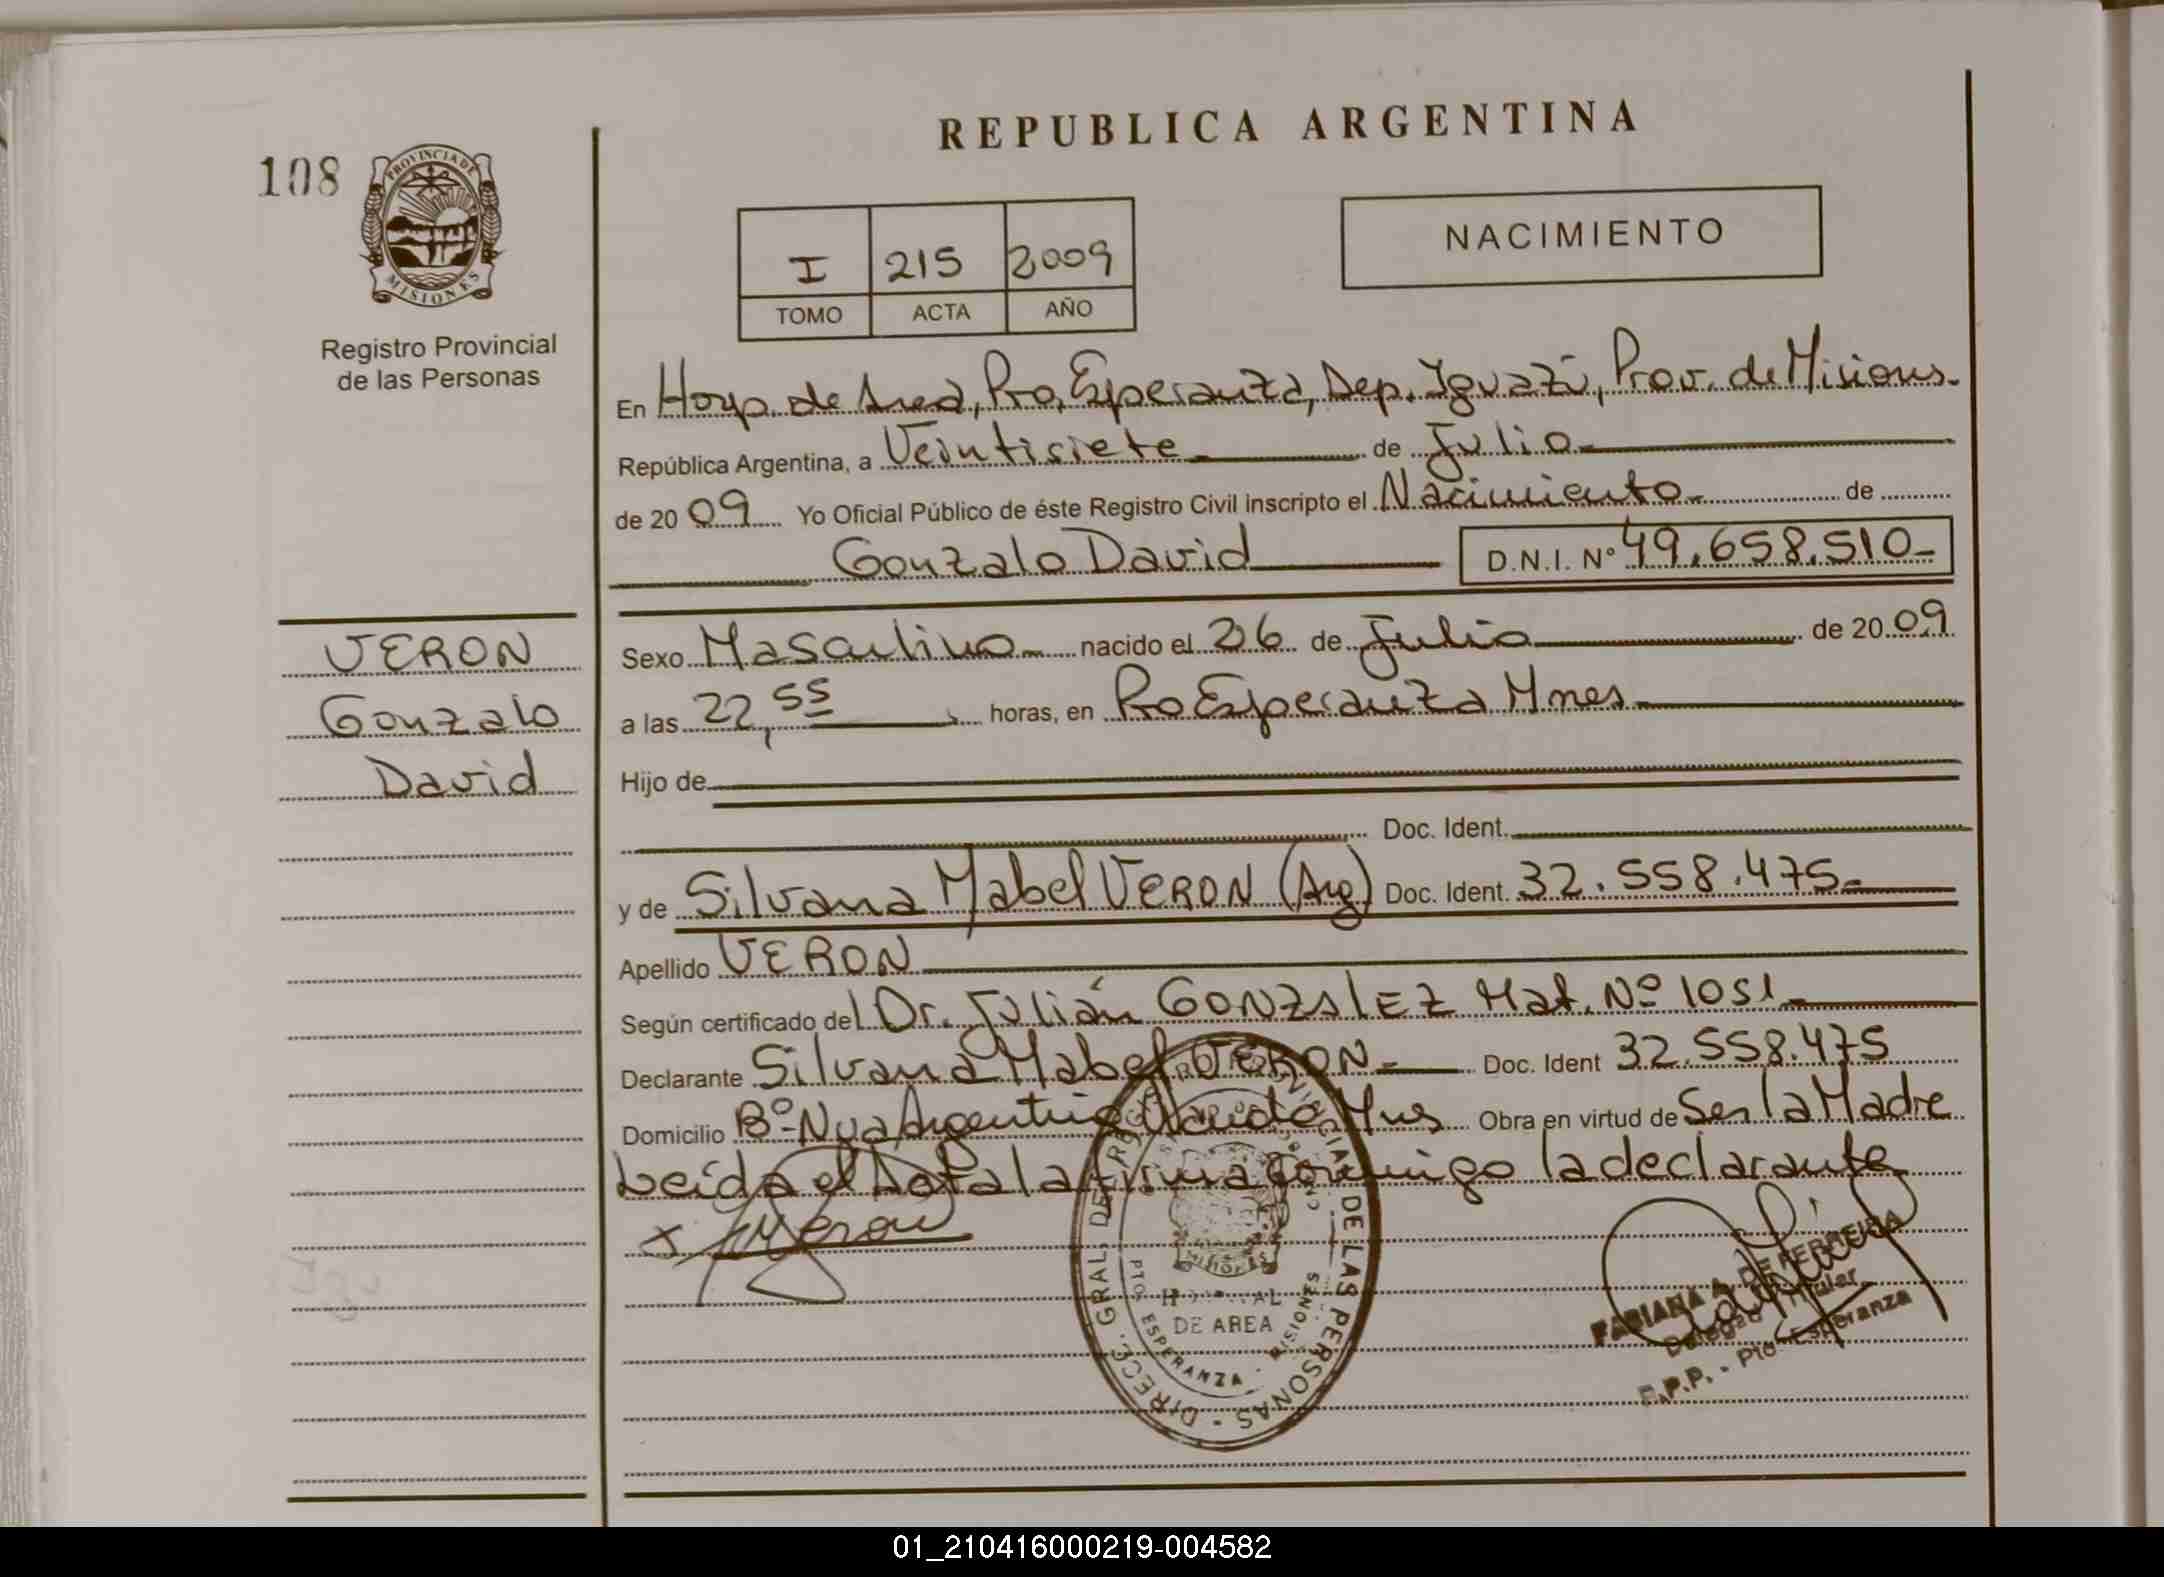 REPUBLICA ARGENTINA
108
PROVINCIA DE
MISIONES
Registro Provincial
de las Personas
I 215 2009
TOMO ACTA AÑO
NACIMIENTO
En Hosp. de Area, Pto. Esperanza, Dep. Iguazú, Prov. de Misiones.
República Argentina, a Veintisiete de Julio
de 2009 Yo Oficial Público de éste Registro Civil inscripto el Nacimiento de
Gonzalo David D.N.I. Nº 49.658.510
VERON
Gonzalo
David
Sexo Masculino nacido el 26 de Julio de 2009
a las 22,55 horas, en Pto Esperanza Mnes
Hijo de
Doc. Ident.
y de Silvana Mabel VERON (Arg) Doc. Ident. 32.558.475
Apellido VERON
Según certificado del Dr. Julián GONZALEZ Mat. Nº 1051
Declarante Silvana Mabel VERON Doc. Ident 32.558.475
Domicilio Bº Nva Argentina Mnes Obra en virtud de Ser la Madre
Leída el Acta la firma conmigo la declarante
DIRECC. GRAL. DE REG. PROVINCIAL DE LAS PERSONAS
MISIONES
DE AREA
PTO. ESPERANZA - MISIONES
FABIANA A. DE FERREIRA
Delegada Titular
R.P.P. - Pto Esperanza
01_210416000219-004582